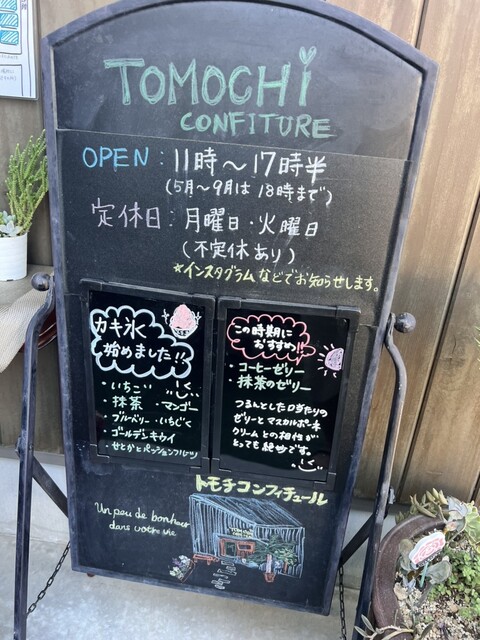 TOMOCHI
CONFITURE
OPEN : 11時〜17時半
(5月〜9月は18時まで)
定休日 : 月曜日・火曜日
(不定休あり)
☆インスタグラムなどでお知らせします。
カキ氷
始めました!!
・いちご
・抹茶 ・マンゴー
・ブルーベリー・いちじく
・ゴールデンキウイ
・せとかとパッションフルーツ
この時期に
おすすめ!!
・コーヒーゼリー
・抹茶のゼリー
つるんとした口当たりの
ゼリーとマスカルポーネ
クリームとの相性が
とっても絶妙です。
トモチコンフィチュール
Un peu de bonheur
dans votre vie